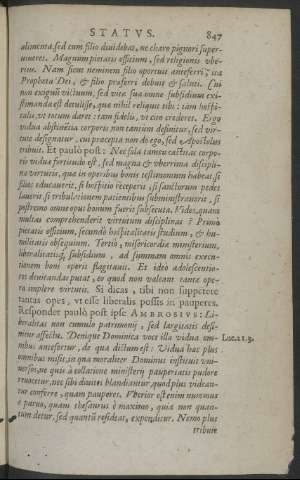 STATVS. 847
alimenta, sed cum filio diuidebat, ne charo pignori super-
uiueret. Magnum pietatis officium, sed religionis vbe-
rius. Nam sicut neminem filio oportuit anteferri; ita
Propheta Dei, & filio præferri debuit & saluti. Cui
non exigui victum, sed vitæ suæ omne subsidium exi-
stimanda est detulisse, quæ nihil reliquit sibi: tam hospi-
talis, vt totum daret: tam fidelis, vt cito crederet. Ergo
vidua abstinentia corporis non tantùm definitur, sed vir-
tute designatur, cui præcepta non do ego, sed Apostolus
tribuit. Et paulò post: Nec sola tamen castitas corpo-
ris viduæ fortitudo est, sed magna & vberrima discipli-
na virtutis, quæ in operibus bonis testimonium habeat, si
filios educauerit, si hospitio receperit, si sanctorum pedes
lauerit, si tribulationem patientibus subministrauerit, si
postremò omne opus bonum fuerit subsecuta. Vides, quam
multas comprehenderit virtutum disciplinas? Primò
pietatis officium, secundò hospitalitatis studium, & hu-
militatis obsequium. Tertiò, misericordiæ ministerium,
liberalitatisq́; subsidium, ad summam omnis execu-
tionem boni operis flagitauit. Et ideò adolescentio-
res deuitandas putat, eò quod non valeant tantæ ope-
ra implere virtutis. Si dicas, tibi non suppetere
tantas opes, vt esse liberalis possis in pauperes.
Respondet paulò post ipse AMBROSIVS: Li-
beralitas non cumulo patrimonij, sed largitatis desi-
nitur affectu. Denique Dominica voce illa vidua om-
nibus antefertur, de qua dictum est: Vidua hæc plus
Luc. 21. 3.
omnibus misit, in qua moraliter Dominus instituit vni-
uersos, ne quis à collatione ministerij paupertatis pudore
reuocetur, nec sibi diuites blandiantur, quod plus videan-
tur conferre, quam pauperes. Vberior est enim nummus
è paruo, quam thesaurus è maximo, quia non quan-
tum detur, sed quantũ resideat, expenditur. Nemo plus
tribuit